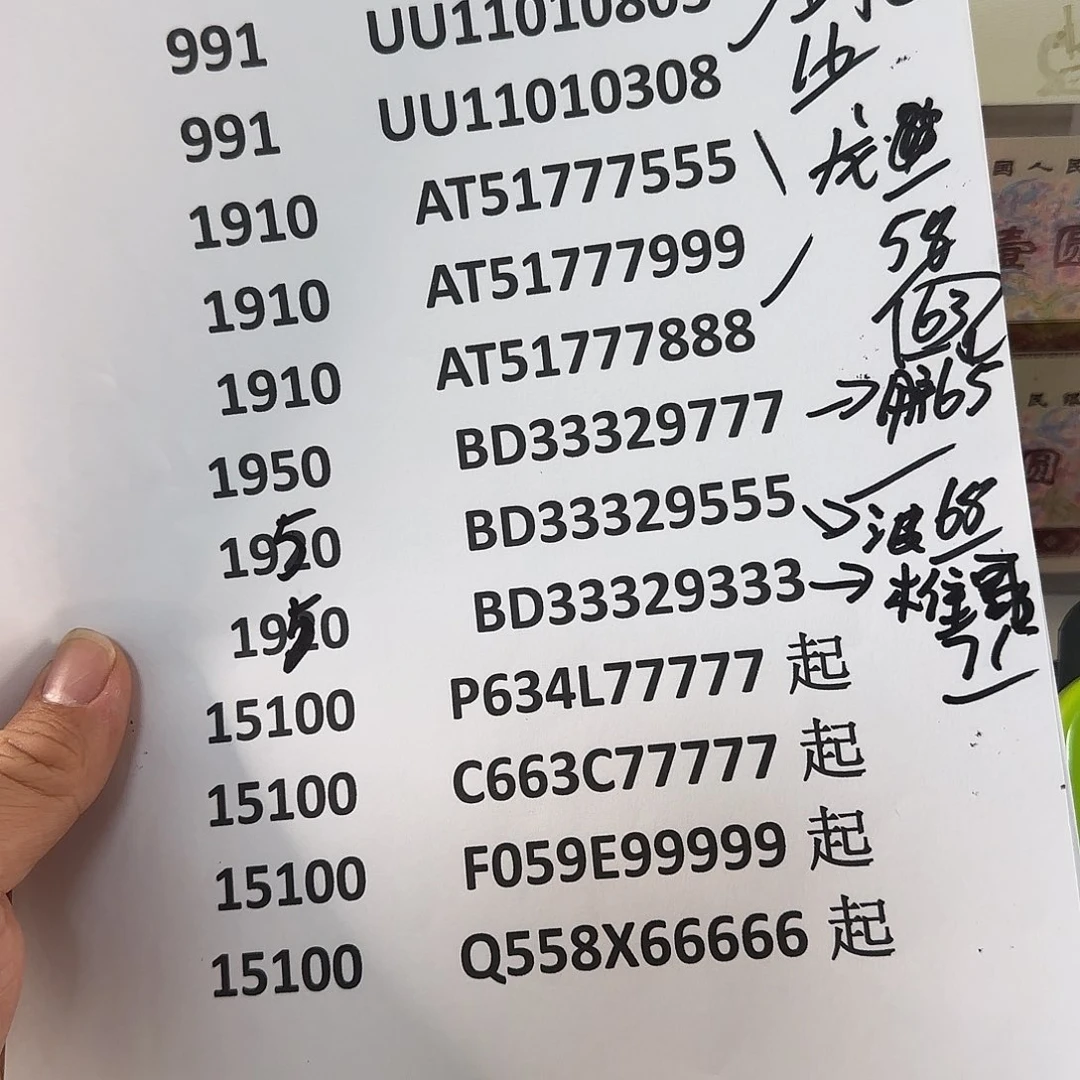 991 UU11010805
991 UU11010308 16
1910 AT51777555 龙
1910 AT51777999 58
63
1910 AT51777888
1950 BD33329777 → 鹏65
1950 BD33329555 波68
1950 BD33329333 → 哥
71
15100 P634L77777 起
15100 C663C77777 起
15100 F059E99999 起
15100 Q558X66666 起
国人民
壹圆
民银
圆